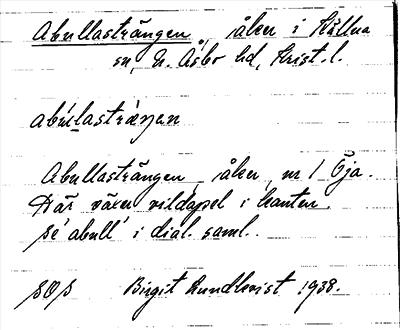 Abullasträngen, åker i Källna
sn, N. Åsbo hd, Krist. l.
abúlastràŋen
Abullasträngen, åker, nr 1 Öja.
Där växer vildapel i kanten.
Se 'abull' i dial. saml.
Birgit Lundkvist 1938.